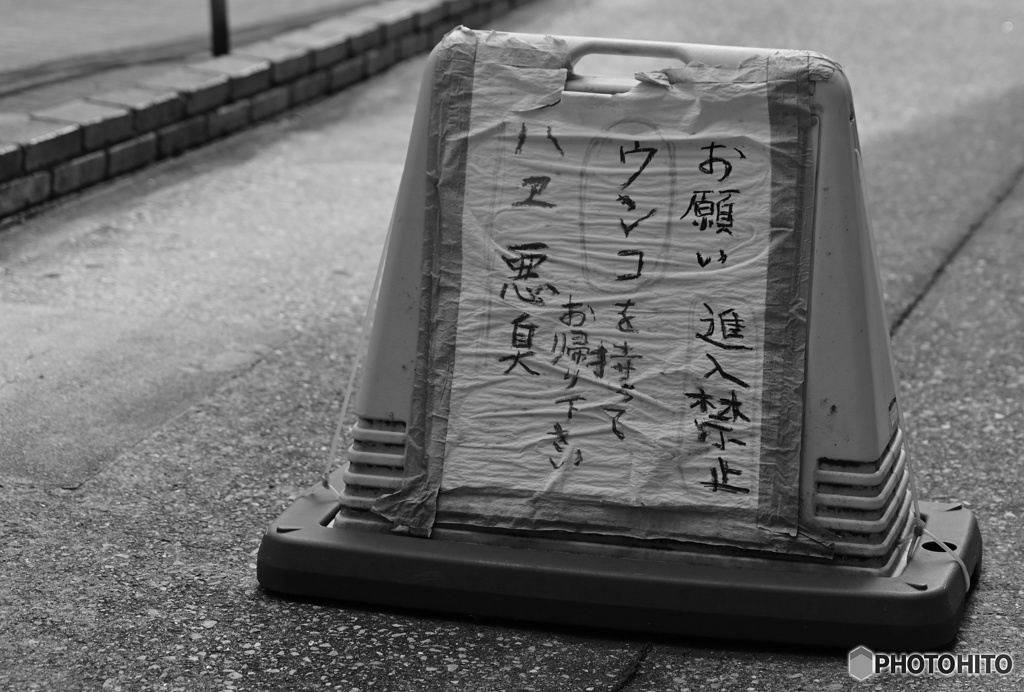 お願い 進入禁止
ウンコを持って
お帰り下さい
ハエ 悪臭
PHOTOHITO